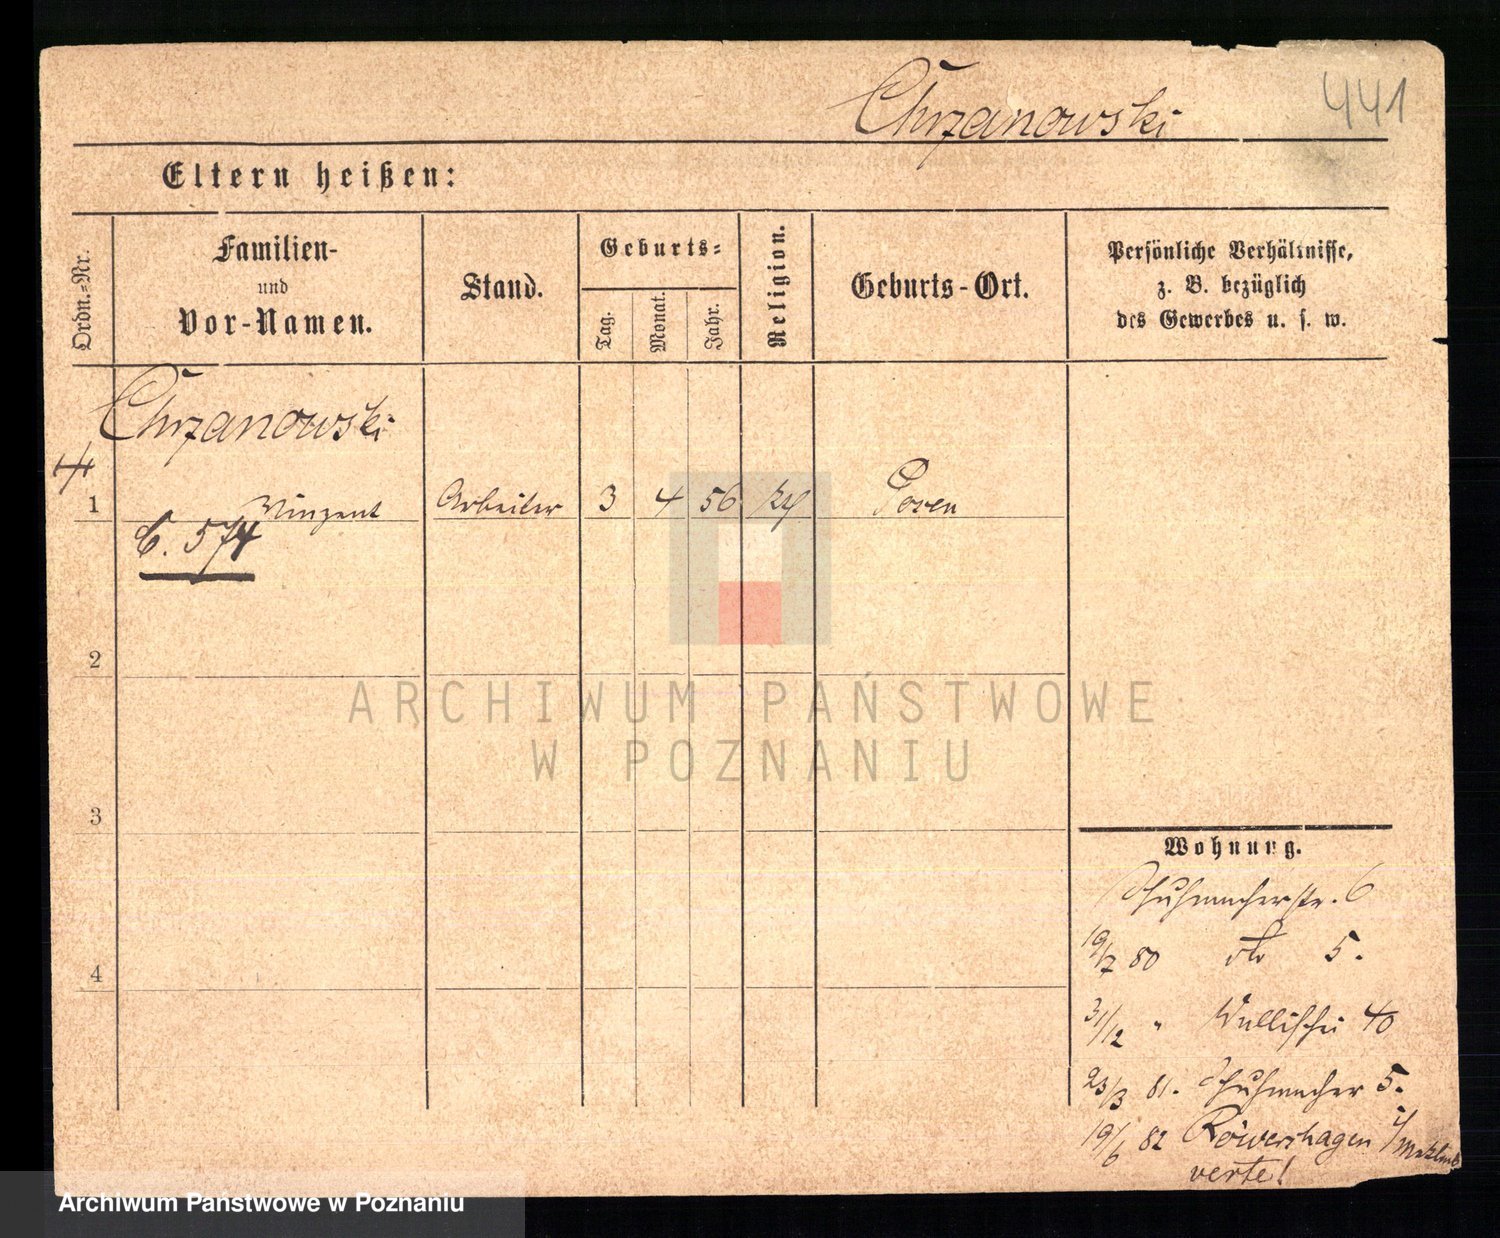 Chrzanowski
441
Eltern heißen:
Ordn.-Nr.
Familien-
und
Vor-Namen.
Stand.
Geburts-
Tag.
Monat.
Jahr.
Religion.
Geburts-Ort.
Persönliche Verhältnisse,
z. B. bezüglich
des Gewerbes u. s. w.
Chrzanowski
1 Vinzent Arbeiter 3 4 56 Posen
C. 574
2
3
4
ARCHIWUM PAŃSTWOWE
W POZNANIU
Wohnung.
Schuhmacherstr. 6
19/7 80 do 5.
31/12 " Wallischei 40
23/3 81. Schuhmacher 5.
19/6 82 Rövershagen i/
verte!
Archiwum Państwowe w Poznaniu